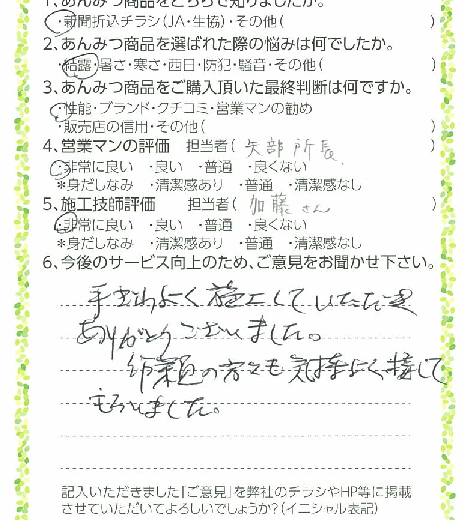 1、あんみつ商品をどちらで知りましたか。
・新聞折込チラシ(JA・生協)・その他( )
2、あんみつ商品を選ばれた際の悩みは何でしたか。
・結露・暑さ・寒さ・西日・防犯・騒音・その他( )
3、あんみつ商品をご購入頂いた最終判断は何ですか。
・性能・ブランド・クチコミ・営業マンの勧め
・販売店の信用・その他( )
4、営業マンの評価 担当者( 矢部所長 )
・非常に良い ・良い ・普通 ・良くない
*身だしなみ ・清潔感あり ・普通 ・清潔感なし
5、施工技師評価 担当者( 加藤さん )
・非常に良い ・良い ・普通 ・良くない
*身だしなみ ・清潔感あり ・普通 ・清潔感なし
6、今後のサービス向上のため、ご意見をお聞かせ下さい。
手ぎわよく施工していただき
ありがとうございました。
の方々も気持よく接して
もらいました。
記入いただきました「ご意見」を弊社のチラシやHP等に掲載
させていただいてよろしいでしょうか?(イニシャル表記)